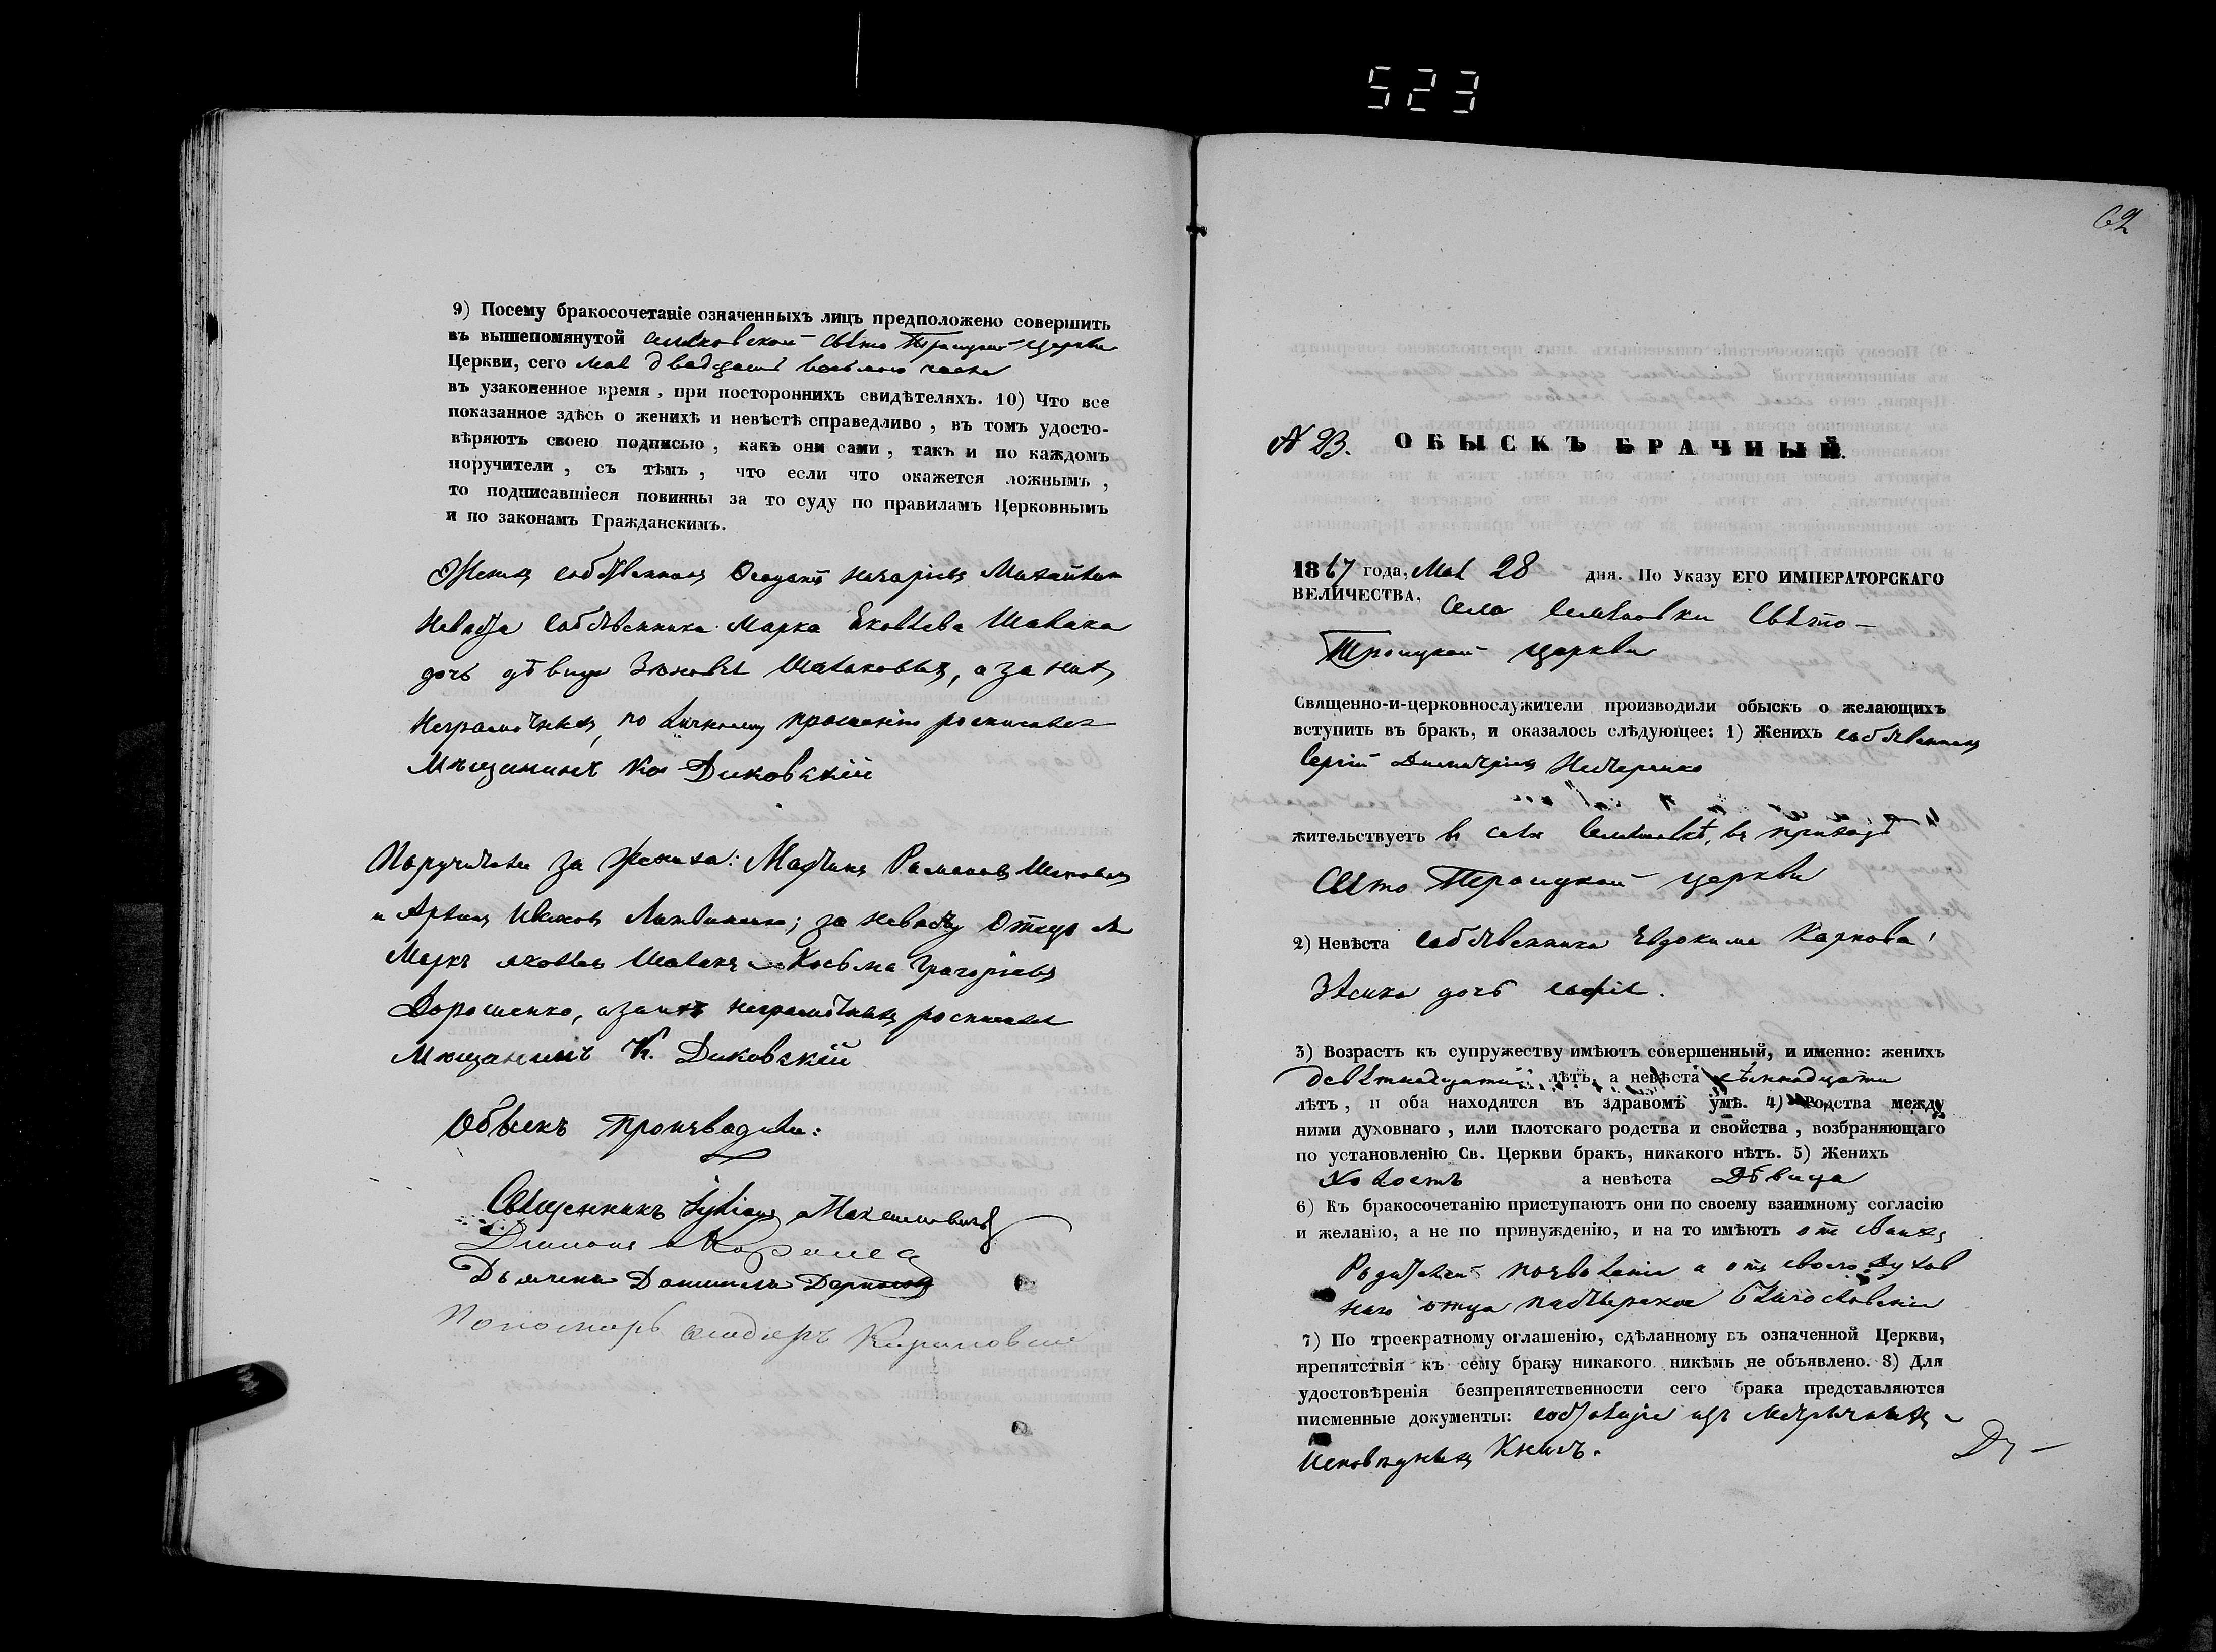 523
62
9) Посему бракосочетаніе означенныхъ лицъ предположено совершить
въ вышепомянутой Свято Троицкой церкви
Церкви, сего Мая двадцать восьмого числа
въ узаконенное время, при постороннихъ свидѣтеляхъ. 10) Что все
показанное здѣсь о женихѣ и невѣстѣ справедливо, въ томъ удосто-
вѣряютъ своею подписью, какъ они сами, такъ и по каждомъ
поручители, съ тѣмъ, что если что окажется ложнымъ,
то подписавшіеся повинны за то суду по правиламъ Церковнымъ
и по законамъ Гражданскимъ.
Женихъ собственникъ Назаріевъ
Невѣста собственника Марка Яковлева Шавлака
дочь дѣвица Зѣновія, а за нихъ
неграмотныхъ, по личному прошенію росписался
Мѣщанинъ Ко Диковскій
Поручители за жениха: Мартинъ Романовъ
и Ивановъ; за невѣсту Отецъ
Маркъ Яковлевъ Козьма Григоріевъ
Дорошенко, а за нихъ неграмотныхъ росписался
Мѣщанинъ К. Диковскій
Обыскъ производили:
Священникъ Максимовичъ
Дьяконъ
Дьячекъ Даниилъ
Пономарь
№ 23. ОБЫСКЪ БРАЧНЫЙ.
1867 года, Мая 28 дня. По Указу ЕГО ИМПЕРАТОРСКАГО
ВЕЛИЧЕСТВА.
Села Семѣновки Свято-
Троицкой церкви
Священно-и-церковнослужители производили обыскъ о желающихъ
вступить въ бракъ, и оказалось слѣдующее: 1) Женихъ собственникъ
Сергій Димитріевъ Нестеренко
жительствуетъ въ селѣ Семѣновкѣ, въ приходѣ
Свято Троицкой церкви
2) Невѣста собственника Евдокима Карпова
дочь Софія.
3) Возрастъ къ супружеству имѣютъ совершенный, и именно: женихъ
девятнадцати лѣтъ, а невѣста
лѣтъ, и оба находятся въ здравомъ умѣ. 4) Родства между
ними духовнаго, или плотскаго родства и свойства, возбраняющаго
по установленію Св. Церкви бракъ, никакого нѣтъ. 5) Женихъ
Холостъ а невѣста Дѣвица
6) Къ бракосочетанію приступаютъ они по своему взаимному согласію
и желанію, а не по принужденію, и на то имѣютъ от своихъ
Родителей позволеніе а отъ своего Духов
наго отца пастырское благословеніе
7) По троекратному оглашенію, сдѣланному въ означенной Церкви,
препятствія къ сему браку никакого никѣмъ не объявлено. 8) Для
удостовѣренія безпрепятственности сего брака представляются
писменные документы: изъ Метричныхъ и
Исповѣдныхъ Книгъ.